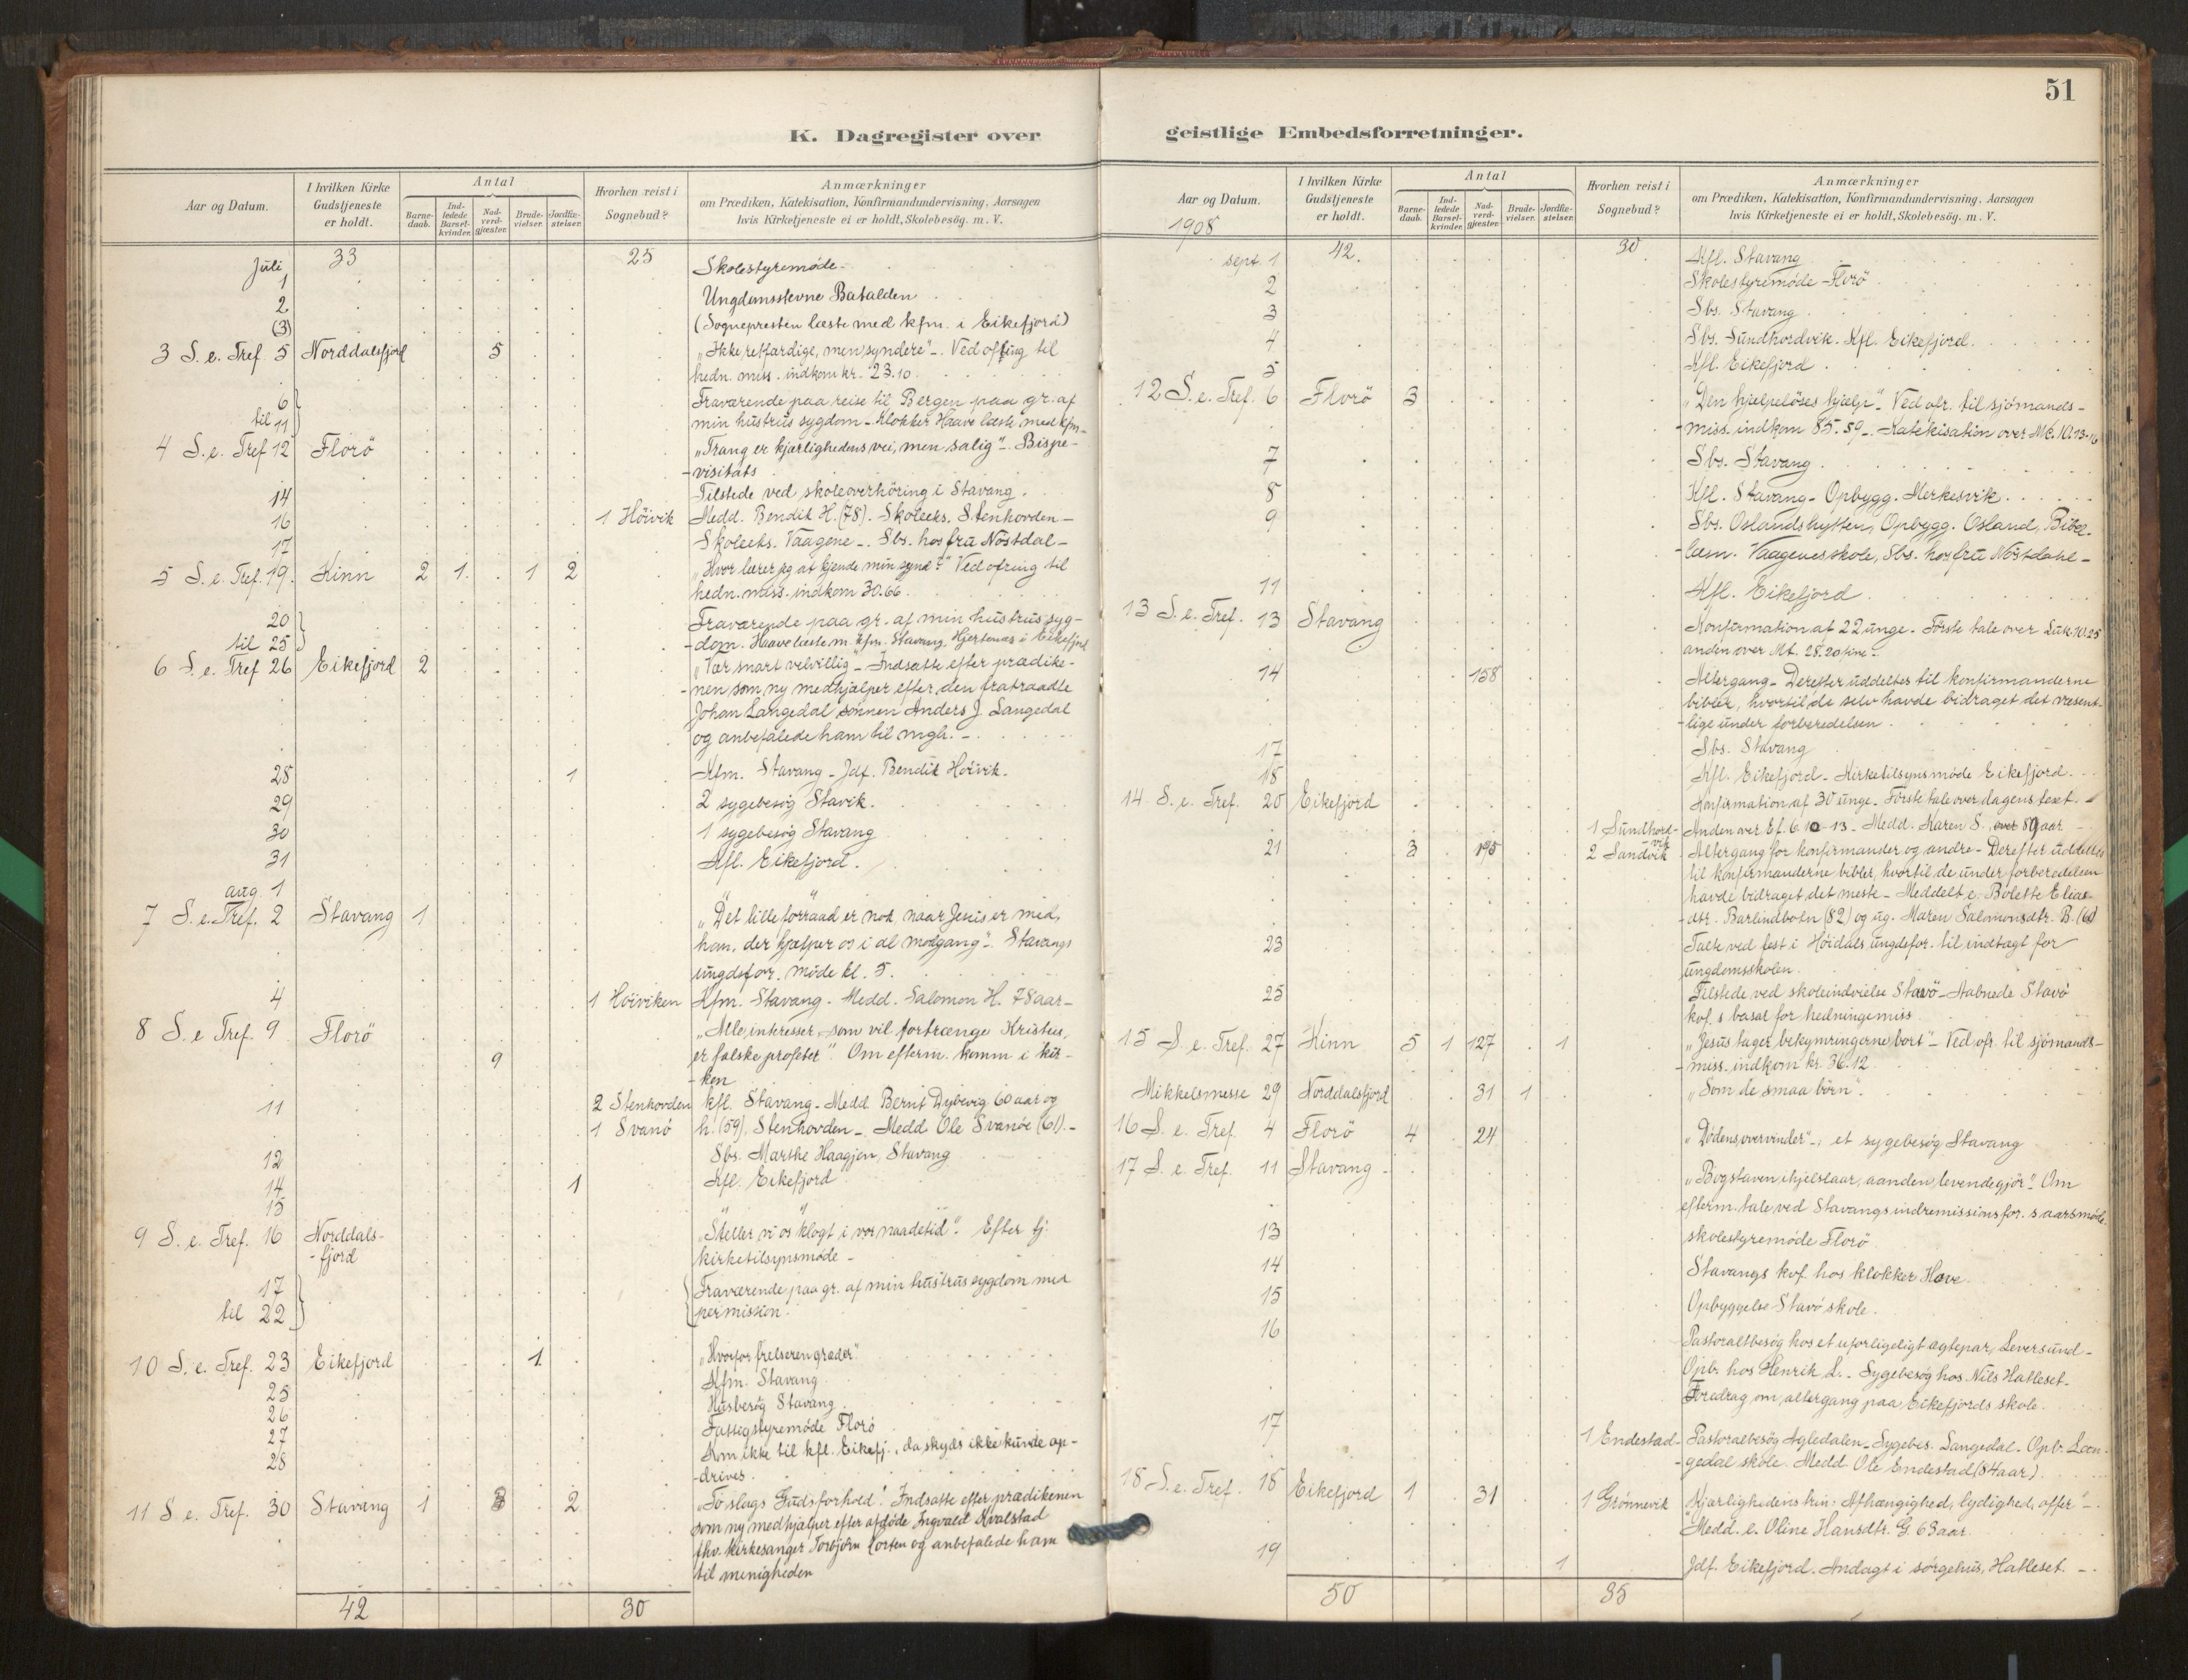 K. Dagregister over
Aar og Datum.
I hvilken Kirke Gudstjeneste er holdt.
Antal
Barne-daab.
Ind-ledede Barsel-kvinder.
Nad-verd-gjæster.
Brude-vielser.
Jordfæ-stelser.
Hvorhen reist i Sognebud?
Anmærkninger
om Prædiken, Katekisation, Konfirmandundervisning, Aarsagen
hvis Kirketjeneste ei er holdt, Skolebesög. m. V.
33 25
Juli 1 Skolestyremöde.
2 Ungdomsstevne Batalden
(3) (Sognepresten læste med kfm. i Eikefjord)
3 S. e. Tref 5 Norddalsfjord 5 "Ikke retfærdige, men syndere" - Ved ofring til
hedn. miss. indkom kr. 23.10
6 Fraværende paa reise til Bergen paa gr. af
til 11 min hustrus sygdom - Klokker Haave læste med kfm -
4 S. e. Tref 12 Florö "Trang er kjærlighedens vei, men salig" - Bispe-
-visitats
14 Tilstede ved skoleoverhöring i Stavang.
16 1 Höivik Medd. Bendik H. (78). Skoleeks. Stenhovden -
17 Skoleeks. Vaagene -. Sbs. hos fru Nöstdal -
5 S. e. Tref. 19. Kinn 2 1. 1 2 "Hvor lærer jeg at kjende min synd?" Ved ofring til
hedn. miss. indkom 30.66.
20 Fraværende paa gr. af min hustrus syg-
til 25 -dom. Haave læste m. kfm. Stavang, Hjertenæs i Eikefjord
6 S. e. Tref 26 Eikefjord 2 "Vær snart velvillig - Indsatte efter prædike-
-nen som ny medhjælper efter den fratraadte
Johan Langedal sönnen Anders J. Langedal
og anbefalede ham til mgh. -
28 1 Kfm. Stavang - Jdf. Bendik Höivik.
29 2 sygebesög Stavik.
30 1 sygebesög Stavang
31 Kfl. Eikefjord.
aug 1 " "
7 S. e. Tref. 2 Stavang 1 "Det lille forraad er nok naar Jesus er med,
han, der hjælper os i al modgang" - Stavangs
ungdsfor. möde kl. 5.
4 1 Höiviken Kfm. Stavang. Medd. Salomon H. 78 aar -
8 S. e Tref. 9 Florö "Alle interesser, som vil fortrænge Kristus,
9 er falske profeter". Om efterm. komm i kir-
-ken
11 2 Stenhovden kfl. Stavang - Medd. Bernt Dybevig 60 aar og
1 Svanö h. (59), Stenhovden -. Medd. Ole Svanöe (61). -
12 Sbs. Marthe Haagjen, Stavang
14 1 Kfl. Eikefjord
15 " "
9 S. e. Tref. 16 Norddals- "Steller vi os klogt i vor naadetid". Efter tj.
-fjord kirketilsynsmöde -
17 Fraværende paa gr. af min hustrus sygdom med
til 22 permission.
10 S. e. Tref. 23 Eikefjord 1 "Hvorfor frelseren græder"
25 Kfm. Stavang
26 Husbesög Stavang
27 Fattigstyremöde Florö
28 Kom ikke til kfl. Eikefj., da skyds ikke kunde op-
-drives.
11 S e. Tref. 30 Stavang 1 3 2 "To slags Gudsforhold". Indsatte efter prædikenen
som ny medhjælper efter afdöde Ingvald Kvalstad
fhv. kirkesanger Torbjörn Losten og anbefalede ham
til menigheden
42 30
51
geistlige Embedsforretninger.
Aar og Datum.
1908
I hvilken Kirke Gudstjeneste er holdt.
Antal
Barne-daab.
Ind-ledede Barsel-kvinder.
Nad-verd-gjæster.
Brude-vielser.
Jordfæ-stelser.
Hvorhen reist i Sognebud?
Anmærkninger
om Prædiken, Katekisation, Konfirmandundervisning, Aarsagen
hvis Kirketjeneste ei er holdt, Skolebesög. m. V.
sept. 1 42. 30 Kfl. Stavang
2 Skolestyremöde - Florö
3 Sbs. Stavang
4 Sbs. Sundhordvik. Kfl. Eikefjord.
5 Kfl. Eikefjord
12 S. e. Tref. 6 Florö 3 "Den hjælpelöses hjælp" - Ved ofr. til sjömands-
-miss. indkom 85.59 -. Katekisation over Mc. 10.13-16
7 Sbs. Stavang
8 Kfl. Stavang - Opbygg. Merkesvik.
9 Sbs. Oslandshytten, Opbygg. Osland, Bibel.
-læsn. Vaagenes skole, Sbs. hos fru Nöstdahl -
11 Kfl. Eikefjord
13 S. e. Tref. 13 Stavang Konfirmation af 22 unge. Förste tale over Luk. 10.25
anden over Mt. 28.20 fine -
14 158 Altergang - Derefter uddeltes til konfirmanderne
bibler, hvortil de selv havde bidraget det væsent-
-lige under forberedelsen
17 Sbs. Stavang
18 Kfl. Eikefjord - Kirketilsynsmöde Eikefjord.
14 S. e. Tref. 20 Eikefjord Konfirmation af 30 unge. Förste tale over dagens text. -
1 Sundhord-vik Anden over Ef. 6. 10-13 - Medd. Karen S., over 89 aar
21 3 195 2 Sandvik Altergang for konfirmander og andre - Derefter uddeltes
til konfirmanderne bibler, hvortil de under forberedelsen
havde bidraget det meste - Meddelt e. Bolette Elias-
-dtr. Barlindbotn (82) og ug. Maren Salomonsdtr. B. (60)
23 Talte ved fest i Höidals ungdsfor. til indtægt for
ungdomsskolen
25 Tilstede ved skoleindvielse Stavö - Aabnede Stavö
kvf. s basar for hedningemiss
15 S. e. Tref. 27 Kinn 5 1 127 1 "Jesus tager bekymringerne bort" - Ved ofr. til sjömands-
-miss. indkom kr. 36.12.
Mikkelsmesse 29 Norddalsfjord 31 1 "Som de smaa börn".
16 S. e. Tref. 4 Florö 4 24 "Dödens overvinder" -; et sygebesög Stavang
17 S. e. Tref. 11 Stavang - "Bogstaven ihjelslaar, aanden levendegjör". Om
efterm. tale ved Stavangs indremissionsfor. s aarsmöde
13 skolestyremöde Florö
14 Stavangs kvf. hos klokker Have
15 Opbyggelse Stavö skole.
16 Pastoraltbesög hos et uforligeligt ægtepar, Leversund -
Opb. hos Henrik L. - Sygebesög hos Nils Hatleset -
Foredrag om altergang paa Eikefjords skole.
17 1 Endestad - Pastoralbesög Agledalen - Sygebes. Langedal. Opb. Lan-
-gedal skole. Medd. Ole Endestad (84 aar)
18 S. e. Tref. 18 Eikefjord 1 31 1 Grönnevik "Kjærlighedens trin: Afhængighed, lydighed, offer" -.
Medd. e. Oline Hansdtr. G. 63 aar.
19 1 Jdf. Eikefjord. Andagt i sörgehus, Hatleset. -.
50 35